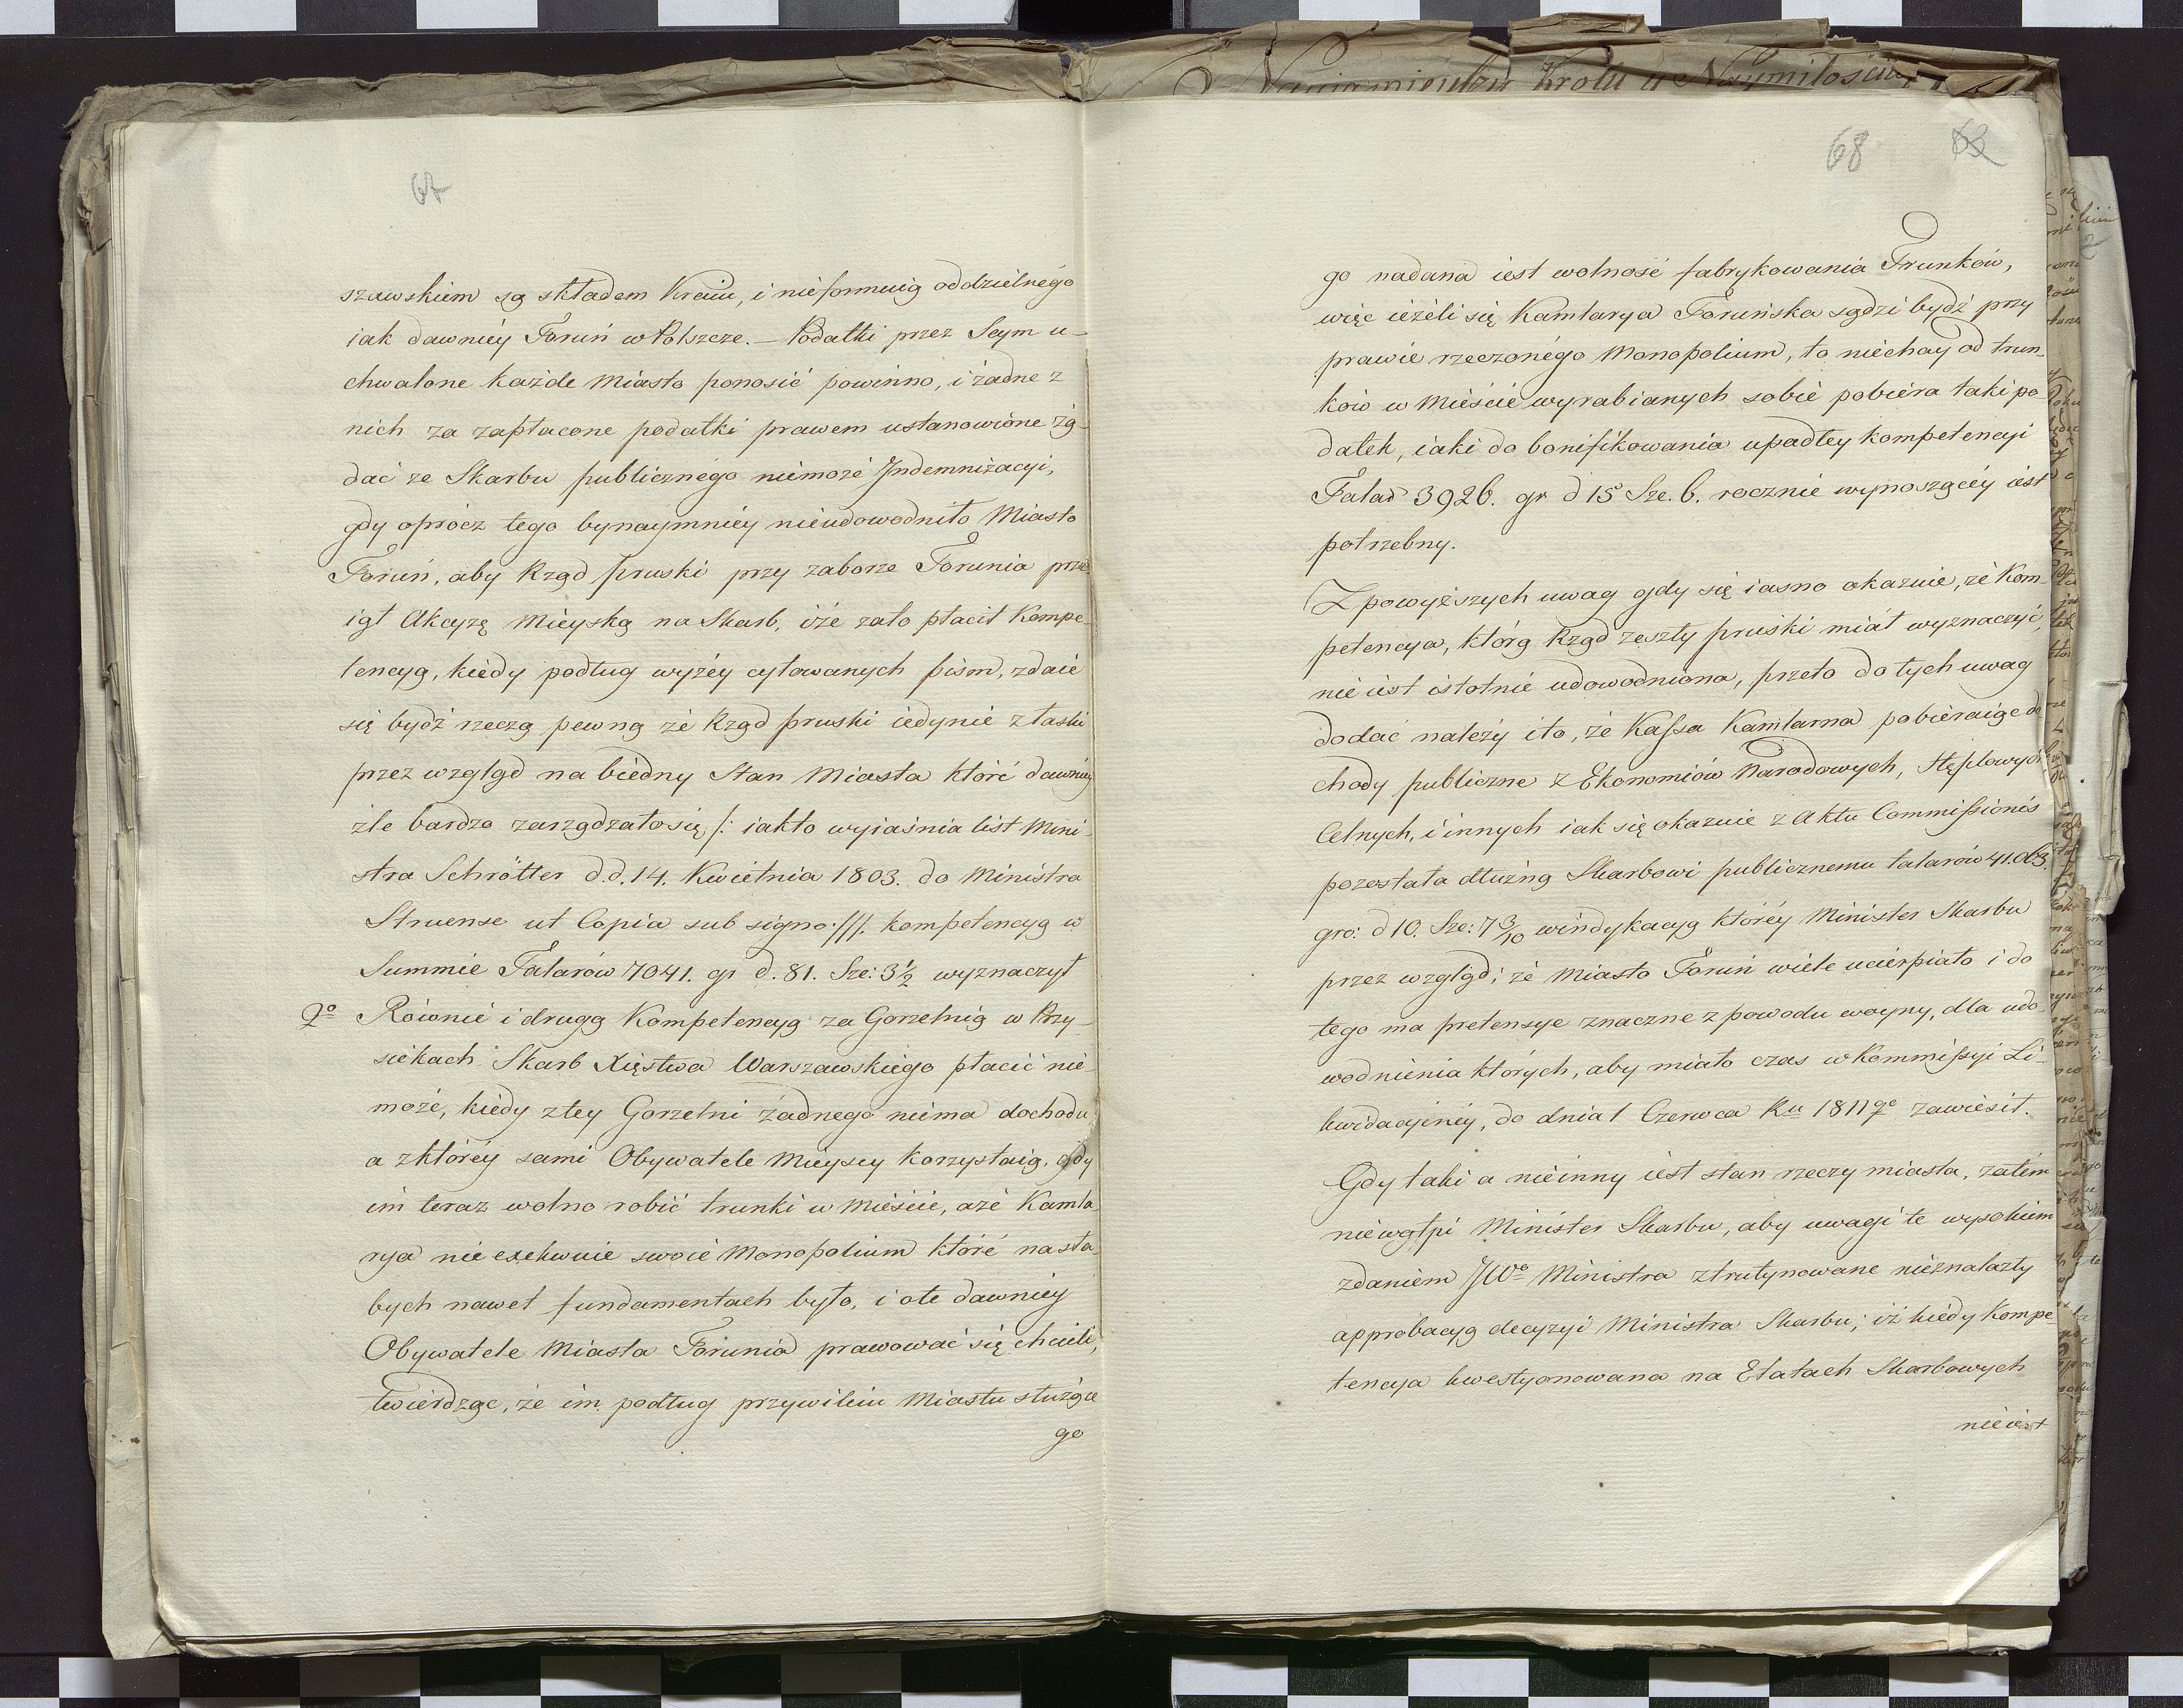 67
szawskiem są składem Kraiu, i nieformuią oddzielnego
iak dawniéy Toruń w Polszcze. — Podatki przez Seym u-
chwalone każde Miasto ponosić powinno, i żadne z
nich za zapłacone podatki prawem ustanowione żą-
dać ze Skarbu publicznégo niemoże Indemnizacyi,
gdy oprócz tego bynaymniéy nieudowodniło Miasto
Toruń, aby Rząd pruski przy zaborze Torunia prze-
iął Akcyzę Mieyską na Skarb, iże zato płacił Kompe-
tencyą, kiedy podług wyżéy cytowanych pism, zdaie
się bydź rzeczą pewną że Rząd pruski iedynie z łaski
przez wzgląd na biedny Stan Miasta które dawniéy
źle bardzo zarządzało się /: iakto wyiaśnia list Mini-
stra Schrötter d.d. 14. Kwietnia 1803. do Ministra
Struense ut Copia sub signo :///. kompetencyą w
Summie Talarów 7041. gr d. 81. Sze: 3½ wyznaczył
2º Rówwnie i drugą Kompetencyą za Gorzelnią w Przy-
siekach Skarb Xięstwa Warszawskiego płacić nie-
może, kiedy z tey Gorzelni żadnego niema dochodu
a z któréy sami Obywatele Mieyscy korzystaią, gdy
im teraz wolno robić trunki w mieście, aże Kamla-
rya nie exekwuie swoie Monopolium które na sła-
bych nawet fundamentach było, i ole dawniéy
Obywatele Miasta Torunia prawować się chcieli,
twierdząc, że im podług przywileiu Miastu służące
go
68 63
go nadana iest wolność fabrykowania Trunków,
więc ieżeli się Kamlarya Toruńska sądzi bydź przy
prawie rzeczonégo Monopolium, to niechay od trun-
ków w Mieście wyrabianych sobie pobiera taki po-
datek, iaki do bonifikowania upadłey kompetencyi
Talar 3926. gr d 15 Sze. 6. rocznie wynoszącéy iest
potrzebny.
Z powyższych uwag gdy się iasno okazuie, że Kom-
petencya, którą Rząd zeszły pruski miał wyznaczyć,
nie iest istotnie udowodniona, przeto do tych uwag
dodać należy i to, że Kassa Kamlarna pobieraiąc do-
chody publiczne z Ekonomiów Narodowych, Stęplowych
Celnych, i innych iak się okazuie z Aktu Commissionis
pozostała dłużną Skarbowi publicznemu talarów 41.063.
gro: d 10. Sze: 7 3/10 windykacyą któréy Minister Skarbu
przez wzgląd; że Miasto Toruń wiele ucierpiało i do
tego ma pretensye znaczne z powodu woyny, dla udo-
wodnienia których, aby miało czas w Kommissyi Li-
kwidacyinéy, do dnia 1 Czerwca Ru 1811go zawiesił.
Gdy taki a nieinny iest stan rzeczy miasta, zatém
niewątpi Minister Skarbu, aby uwagi te wysokiem
zdaniem JWº Ministra ztrutynowane nieznalazły
approbacyą decyzyi Ministra Skarbu; iż kiedy Kompe-
tencya kwestyonowana na Etatach Skarbowych
nieiest